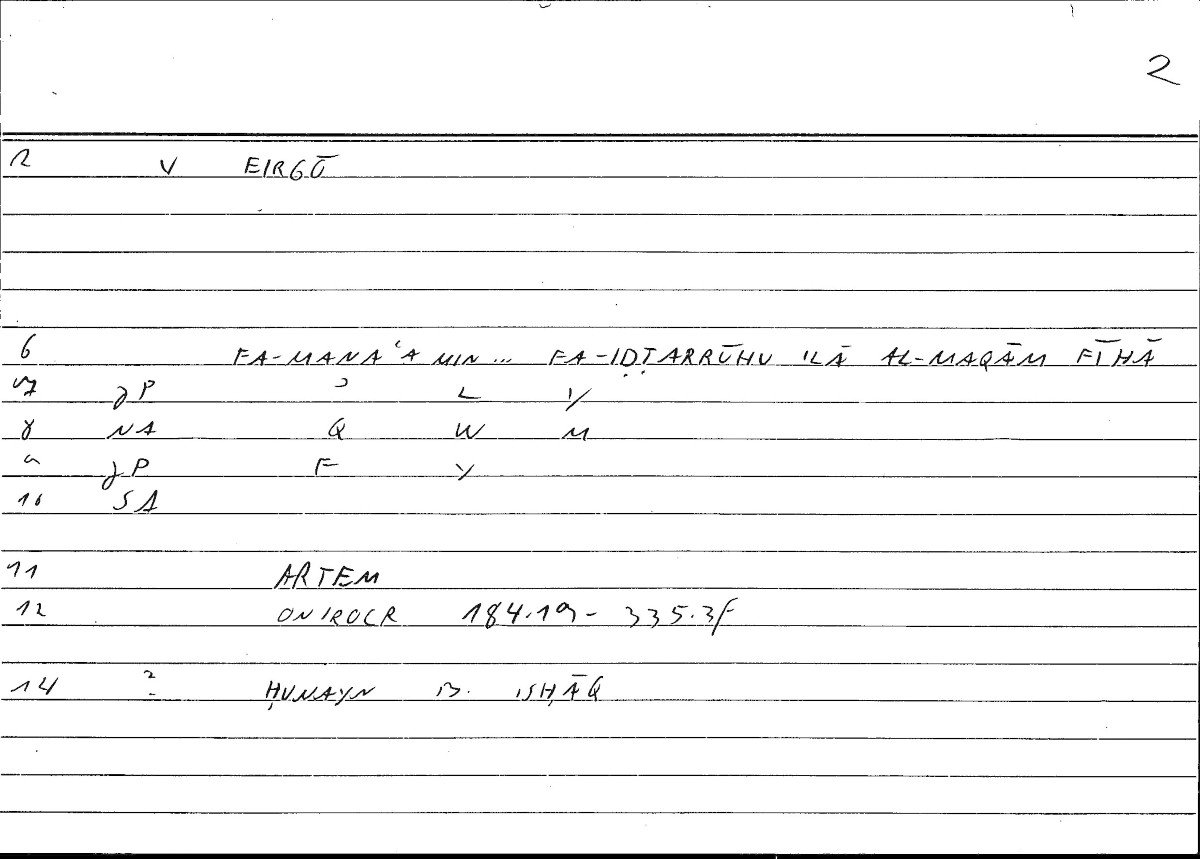 2
2 V EIRGŌ
6 FA-MANAʿA MIN... FA-IḌṬARRŪHU ILĀ AL-MAQĀM FĪHĀ
7 gP ʾ L Y
8 NA Q W M
9 gP F Y
10 SA
11 ARTEM
12 ONIROCR 184.19- 335.3f
14 2 ḤUNAYN B. ISḤĀQ